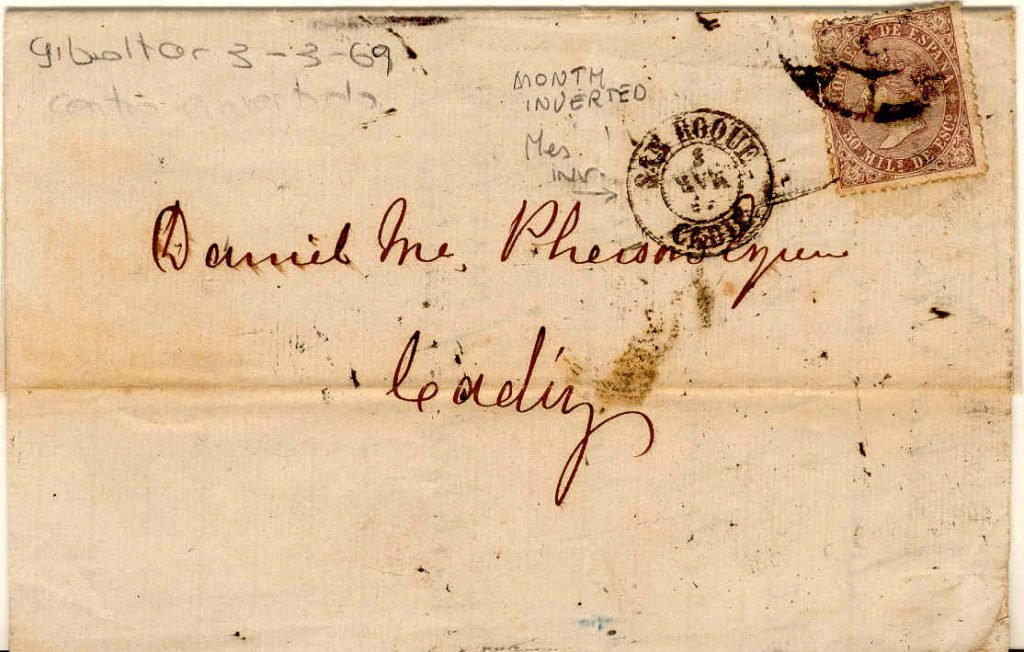 Gibraltar 3-3-69
MONTH
INVERTED
Mes
inv.
SAN ROQUE.
3
MAR
CADIZ
CORREOS DE ESPAÑA
50 MILS. DE ESCO.
Daniel Mc. Pherson
Cadiz